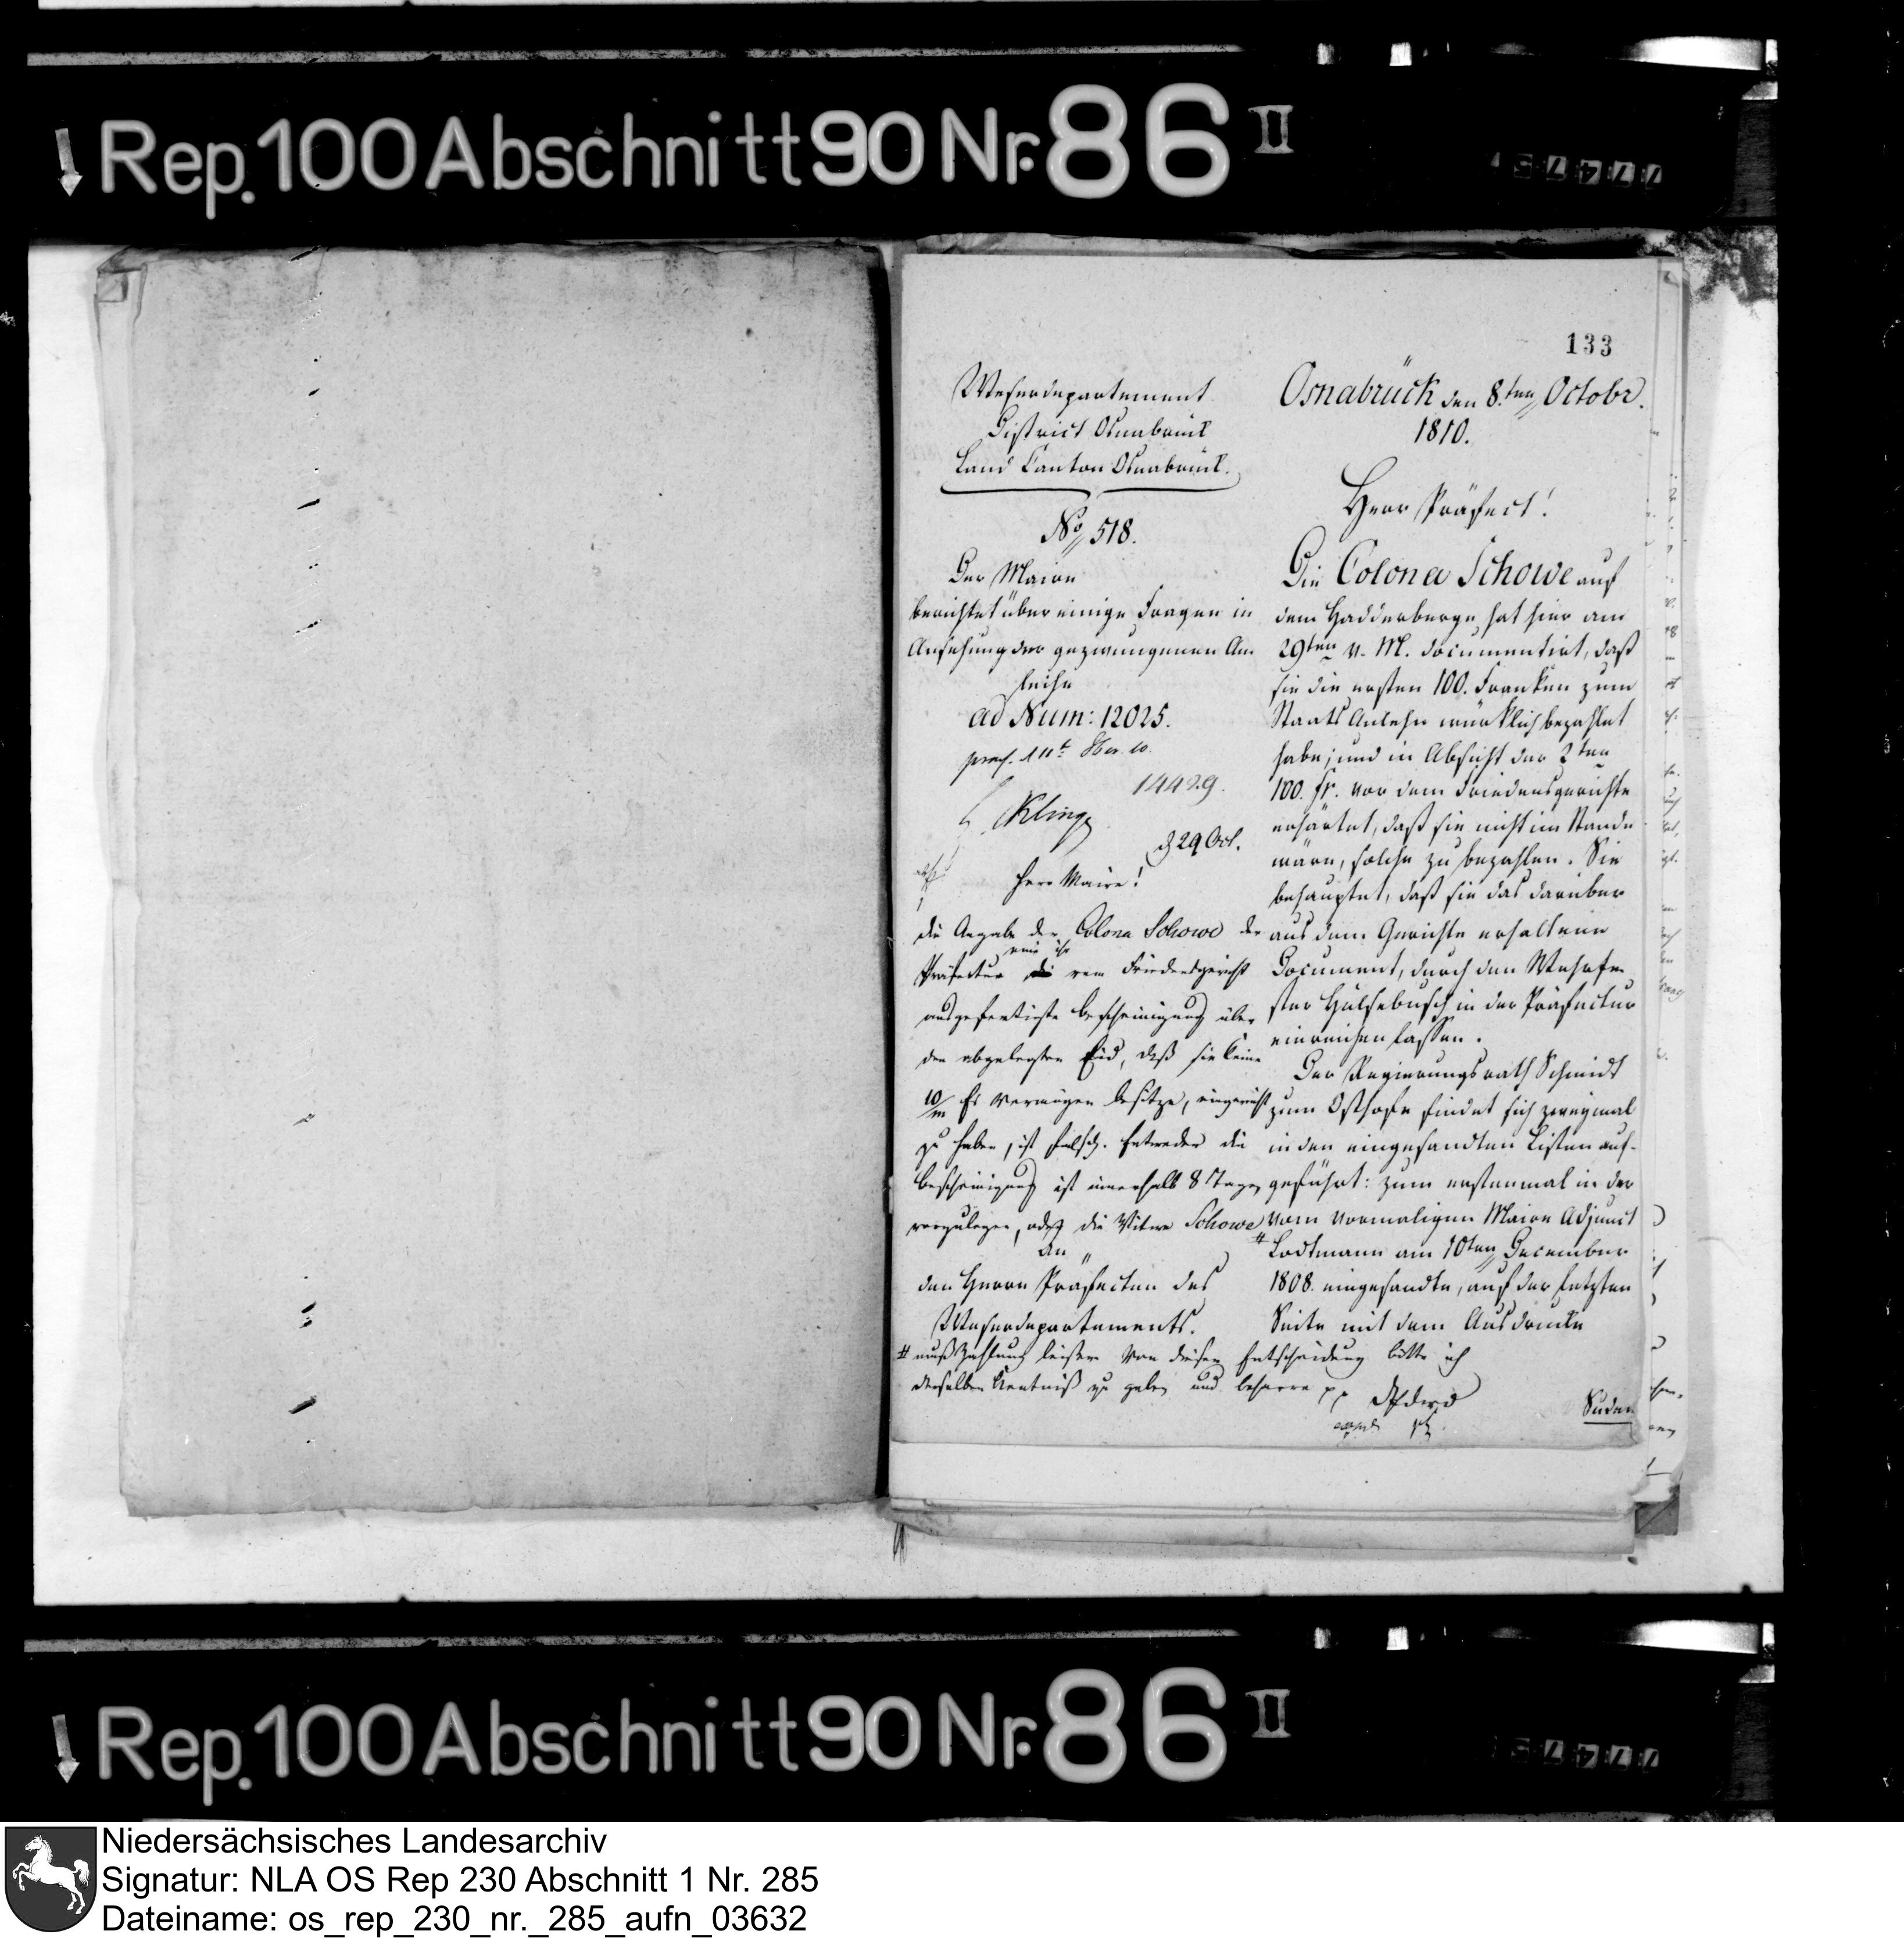 Rep. 100 Abschnitt 90 Nr. 86 II
133
Weserdepartement
District Osnabrück
Land Canton Osnabrück.
No 518.
Der Maire
berichtet über einige Fragen in
Ansehung der gezwungenen An
leihe
ad Num: 12025.
praes. 11t 8br. 10.
14429.
Kling
d 29 Oct.
Herr Maire!
die Angabe der Colona Schowe der
Präfectur eine ihr vom Friedensgericht
ausgefertigte Bescheinigung über
den abgelegten Eid, daß sie keine
10/m Fs Vermögen besitze, eingereicht
zu haben, ist falsch. Entweder die
Bescheinigung ist innerhalb 8 Tagen
vorzulegen, oder die Witwe Schowe #
An
den Herrn Präfecten des
Weserdepartements.
# muß Zahlung leisten Von dieser Entscheidung bitte ich
derselben Kentniß zu geben und beharre pp
Osnabrück den 8.ten Octobr.
1810.
Herr Präfect!
Die Colona Schowe auf
dem Hadderberge hat hier am
29ten v. M. documentirt, daß
sie die ersten 100. Franken zum
Staats Anlehn würklich bezahlet
habe; und in Absicht der 2ten
100. fr. vor dem Friedensgerichte
erhärtet, daß sie nicht im Stande
wäre, solche zu bezahlen. Sie
behauptet, daß sie das darüber
aus dem Gerichte erhaltene
Document, durch den Wehrfe
ster Hülsebusch in der Präfectur
einreichen lassen.
Der Regierungsrath Schmidt
zum Osthofe findet sich zweymal
in den eingesandten Listen auf-
geführt: zum erstenmal in der
vom vormaligen Maire Adjunct
Lodtmann am 10ten December
1808. eingesandte, auf der letzten
Seite mit dem Ausdrucke
Rep. 100 Abschnitt 90 Nr. 86 II
Niedersächsisches Landesarchiv
Signatur: NLA OS Rep 230 Abschnitt 1 Nr. 285
Dateiname: os_rep_230_nr._285_aufn_03632